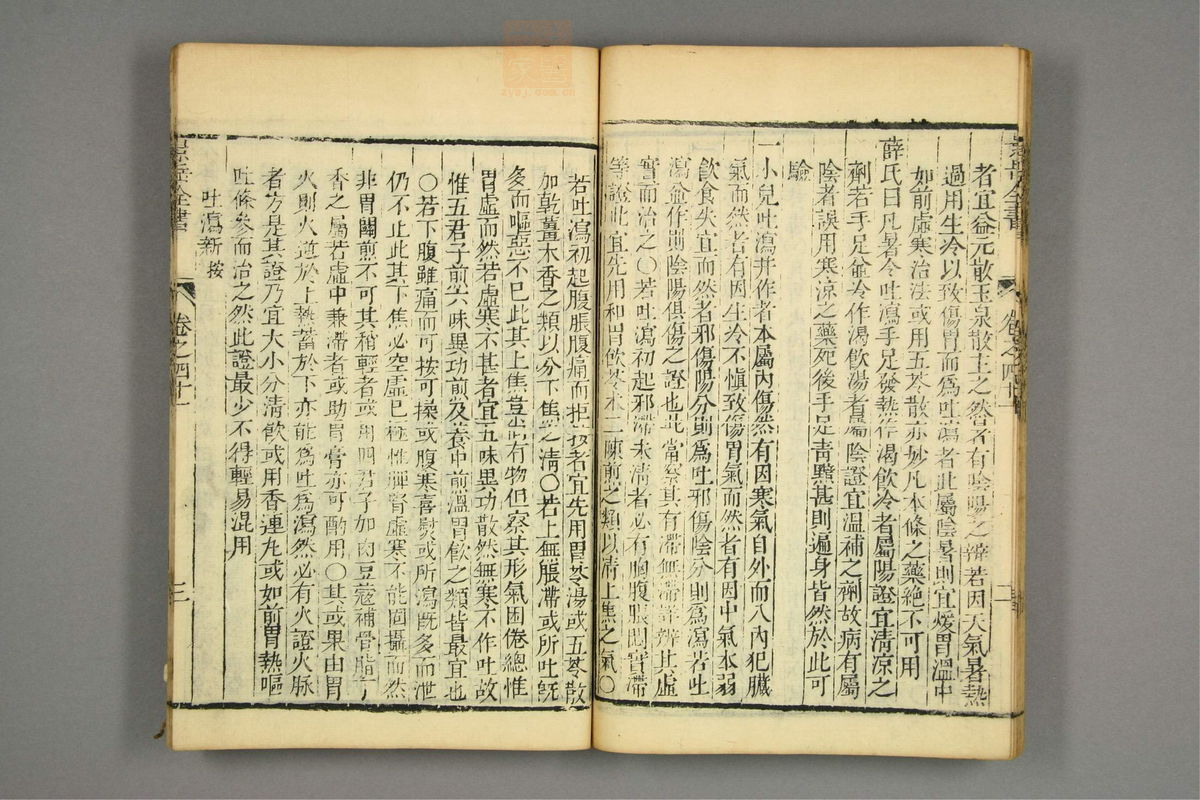 者宜益元散玉泉散主之然者有陰陽之辯若因天氣暑熱
過用生冷以致傷胃而為吐瀉者此屬陰暑則宜煖胃溫中
如前虛寒治法或用五苓散亦妙凡本條之藥絕不可用
薛氏曰凡暑令吐瀉手足發熱作渴飲冷者屬陽證宜清涼之
劑若手足並冷作渴飲湯者屬陰證宜溫補之劑故病有屬
陰者誤用寒涼之藥死後手足青黯甚則遍身皆然於此可
驗
一小兒吐瀉并作者本屬內傷然有因寒氣自外而入內犯臟
氣而然者有因生冷不慎致傷胃氣而然者有因中氣本弱
飲食失宜而然者邪傷陽分則為吐邪傷陰分則為瀉若吐
瀉並作則陰陽俱傷之證也此當察其有滯無滯詳辨其虛
實而治之〇若吐瀉初起邪滯未清者必有胸腹脹悶實滯
等證此宜先用和胃飲苓朮二陳煎之類以清上焦之氣〇
若吐瀉初起腹脹腹痛而拒按者宜先用胃苓湯或五苓散
加乾薑木香之類以分下焦之清〇若上無脹滯或所吐既
多而嘔惡不已此其上焦豈尚有物但察其形氣困倦總惟
胃虛而然若虛寒不甚者宜五味異功散然無寒不作吐故
惟五君子煎六味異功煎及養中煎溫胃飲之類皆最宜也
〇若下腹雖痛而可按可揉或腹寒喜熨或所瀉既多而泄
仍不止此其下焦必空虛已極惟脾腎虛寒不能固攝而然
非胃關煎不可其稍輕者或用四君子加肉豆蔻補骨脂丁
香之屬若虛中兼滯者或助胃膏亦可酌用〇其或果由胃
火則火逆於上熱蓄於下亦能為吐為瀉然必有火證火脈
者方是其證乃宜大小分清飲或用香連丸或如前胃熱嘔
吐條參而治之然此證最少不得輕易混用
吐瀉新按
景岳全書
卷之四十一
二
景岳全書
卷之四十一
三